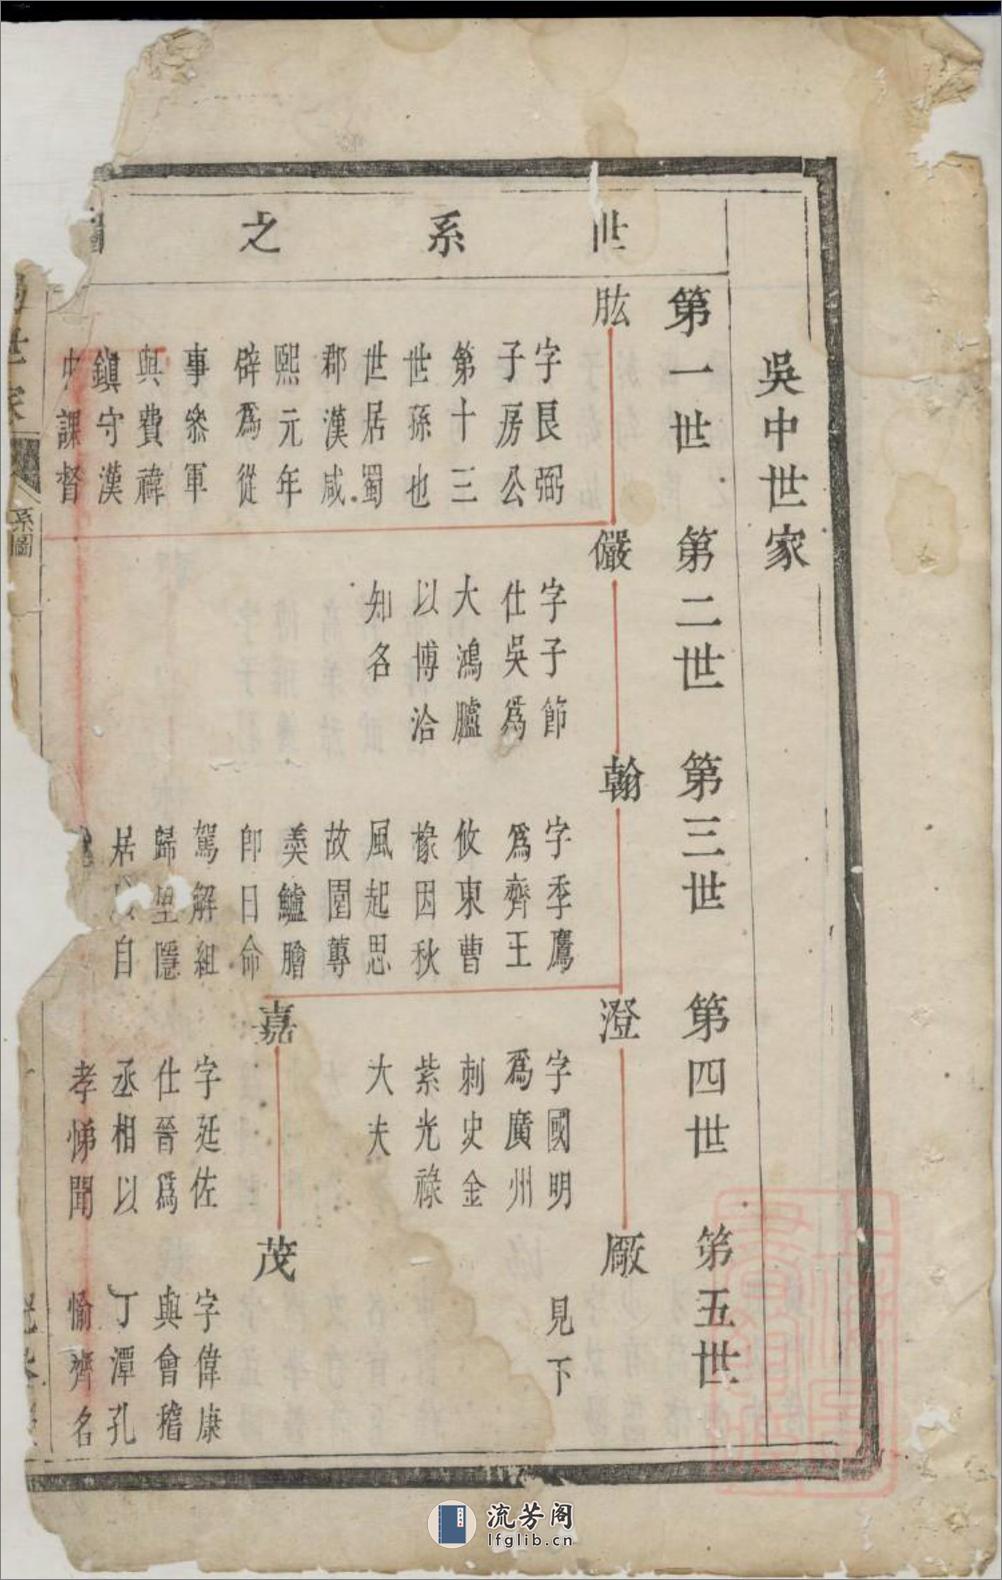 吳中世家
第一世
第二世
第三世
第四世
第五世
世系之圖
肱
字艮弼
子房公
第十三
世孫也
世居蜀
郡漢咸
熙元年
辟爲從
事叅軍
與費禕
鎮守漢
中課督
儼
字子節
仕吳爲
大鴻臚
以博洽
知名
翰
字季鷹
爲齊王
攸東曹
椽因秋
風起思
故園蓴
羹鱸膾
卽日命
駕解組
歸里隱
居 自
澄
字國明
爲廣州
刺史金
紫光祿
大夫
嘉
字廷佐
仕晉爲
丞相以
孝悌聞
厰
見下
茂
字偉康
與會稽
丁潭孔
愉齊名
世家
系圖
流芳阁
lfglib.cn